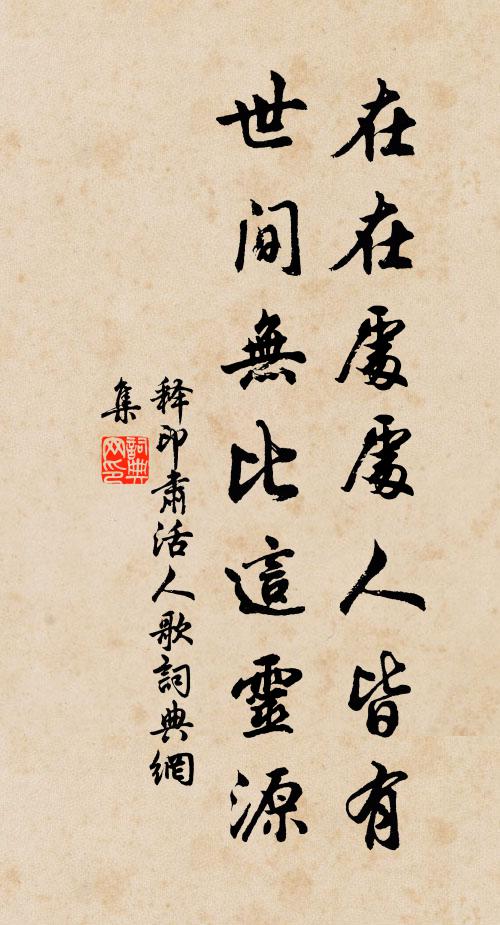 在在處處人皆有
世间無比這靈源
释印肅活人歌詞典網
集
詞典网印